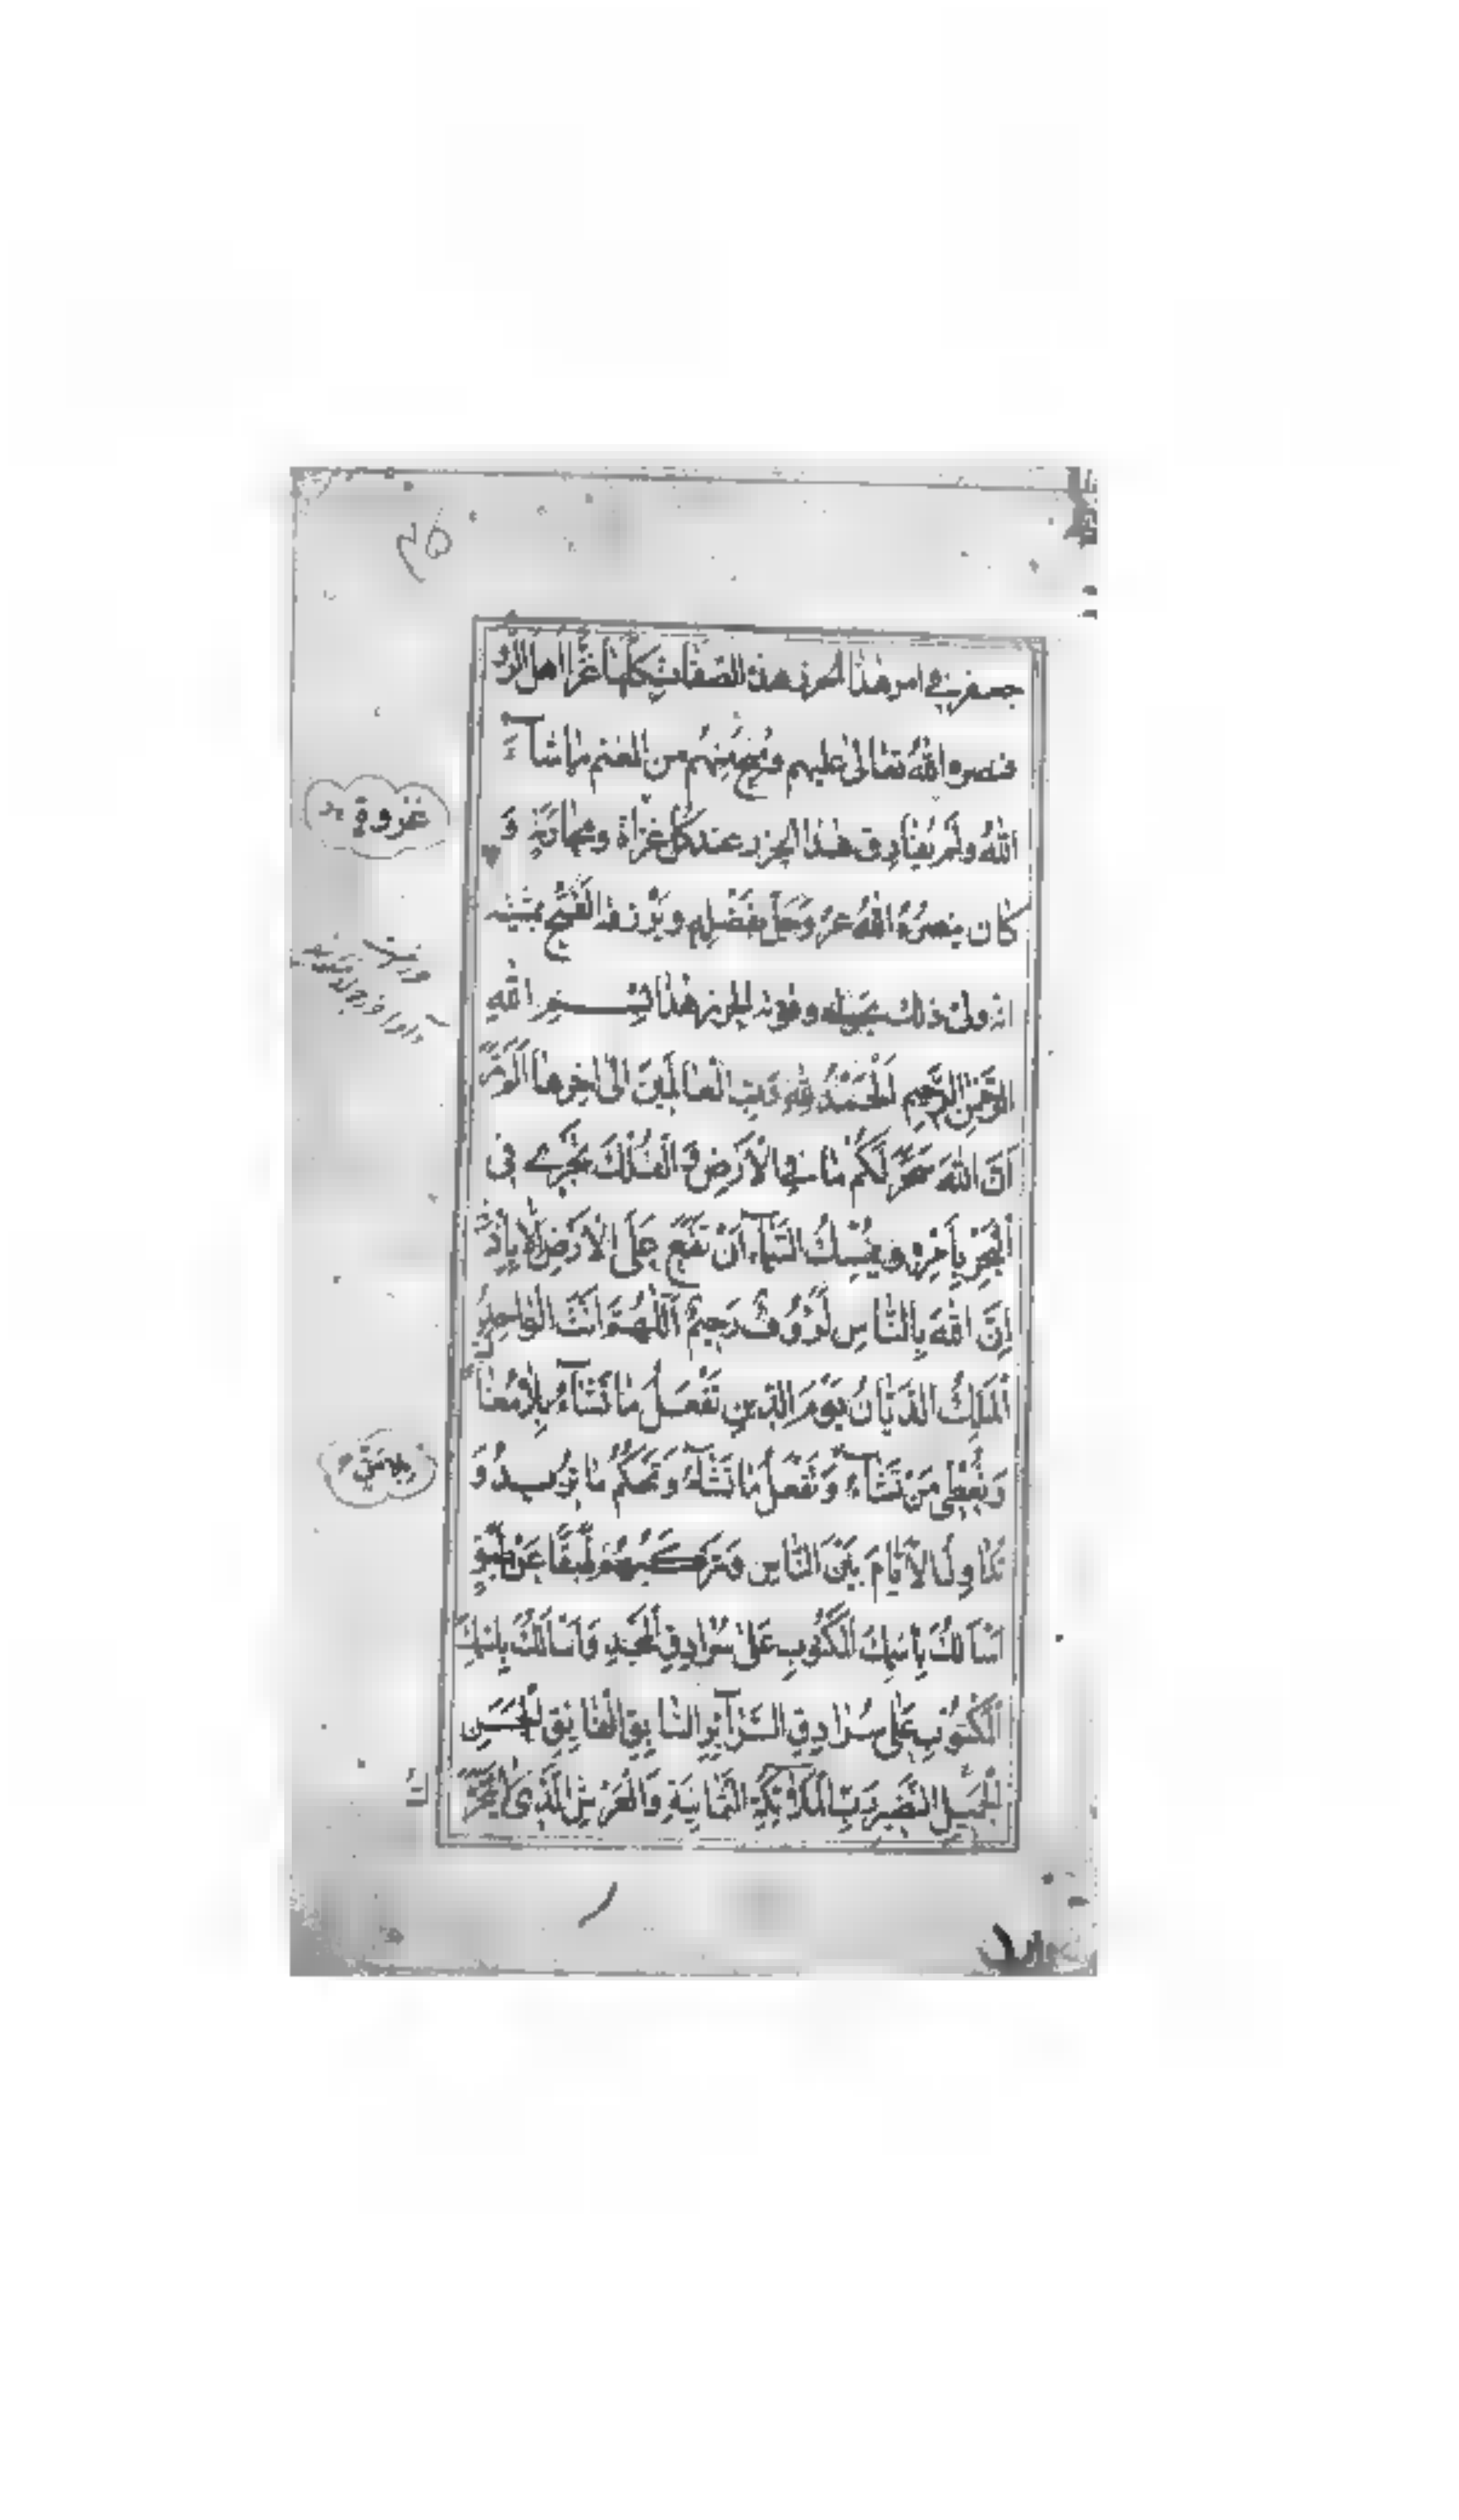 ٢٥
جعفر في امر هذا الحرز هذه الصفات كلها غزا اهل الرّو
فنصره اللهُ تعالى عليهم و منهم من المغنم ما شآءَ
اللهُ ولم يفارق هذا الحرز عند كل غزاة ومحاربةٍ وَ
كان ينصرُهُ اللهُ عزّ وَجَلَّ بفَضْلِه ويرزقه الفَتْحَ
انه وليّ ذلك بحوله وقوته الحرز هذا بِسْــمِ اللهِ
الرَّحْمٰنِ الرَّحيمِ اَلْحَمْدُ لِلّٰهِ رَبِّ الْعالَمينَ الىٰ اخِرِها اَلَمْ تَرَ
اَنَّ اللهَ سَخَّرَ لَكُمْ ما في الْاَرْضِ وَ الْفُلْكَ تَجْري فِي
الْبَحْرِ بِاَمْرِهِ وَ يُمْسِكُ السَّمآءَ اَنْ تَقَعَ عَلَى الْاَرْضِ اِلّا بِاِذْنِه
اِنَّ اللهَ بِالنّاسِ لَرَؤُفٌ رَحيمٌ اَللّٰهُمَّ اَنْتَ الْواحِدُ
الْمَلِكُ الدَّيّانُ يَوْمَ الدّينِ تَفْعَلُ ما تَشآءُ بِلا مُغالَبَةٍ
وَ تُعْطي مَنْ تَشآءُ وَ تَفْعَلُ ما تَشآءُ وَ تَحْكُمُ ما تُريــدُ وَ
تُداوِلُ الْاَيّامَ بَيْنَ النّاسِ وَ تُرَكِّبُهُمْ طَبَقًا عَنْ طَبَقٍ
اَسْاَلُكَ بِاسْمِكَ الْمَكْتُوبِ عَلىٰ سُرادِقِ الْمَجْدِ وَ اَسْاَلُكَ بِاسْمِكَ
الْمَكْتُوبِ عَلىٰ سُرادِقِ السَّرآئِرِ السّابِقِ الْفائِقِ الْحَسَنِ
الْجَميلِ النَّضيرِ رَبِّ الْمَلآئِكَةِ الثَّمانِيَةِ وَ الْعَرْشِ الَّذي لا يَتَحَرَّكُ